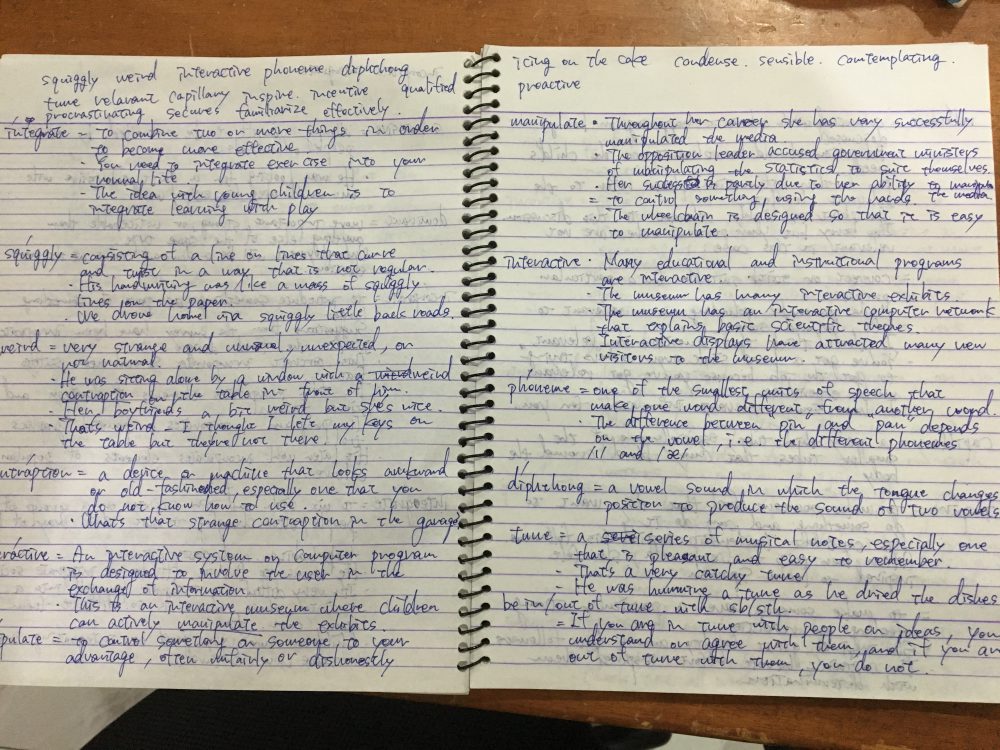 squiggly weird interactive phoneme diphthong
tune relavant capillary inspire. incentive qualified
procrastinating secures familiarize effectively.
integrate = to combine two or more things in order
to become more effective
· You need to integrate exercise into your
normal life.
- The idea with young children is to
integrate learning with play
squiggly = consisting of a line or lines that curve
and twist in a way that is not regular.
· His handwriting was like a mass of squiggly
lines on the paper.
· We drove home via squiggly little back roads.
weird = very strange and unusual, unexpected, or
not natural.
· He was sitting alone by a window with a weird
contraption on the table in front of him.
· Her boyfriends a bit weird but she's nice.
· That's weird - I thought I left my keys on
the table but they're not there.
ntraption = a device or machine that looks awkward
or old-fashioned, especially one that you
do not know how to use.
· What's that strange contraption in the garage
eractive = An interactive system or computer program
is designed to involve the user in the
exchange of information.
· This is an interactive museum where children
can actively manipulate the exhibits.
pulate = to control something or someone to your
advantage, often unfairly or dishonestly
icing on the cake condense. sensible. contemplating.
proactive
manipulate · Throughout her career she has very successfully
manipulated the media
· The opposition leader accused government ministers
of manipulating the statistics to suit themselves.
· Her success is partly due to her ability to manipula
the media.
= to control something using the hands.
· The wheelchair is designed so that it is easy
to manipulate.
interactive · Many educational and instructional programs
are interactive.
The museum has many interactive exhibits.
The museum has an interactive computer network
that explains basic scientific theories.
Interactive displays have attracted many new
visitors to the museum.
phoneme = one of the smallest units of speech that
make one word different from another word.
· The difference between pin and pan depends
on the vowel, i.e. the different phonemes
/ɪ/ and /æ/
diphthong = a vowel sound in which the tongue changes
position to produce the sound of two vowels
tune = a series of musical notes, especially one
that is pleasant and easy to remember.
- That's a very catchy tune
- He was humming a tune as he dried the dishes
be in/out of tune with sb/sth
= If you are in tune with people or ideas, you
understand or agree with them, and if you ar
out of tune with them, you do not.